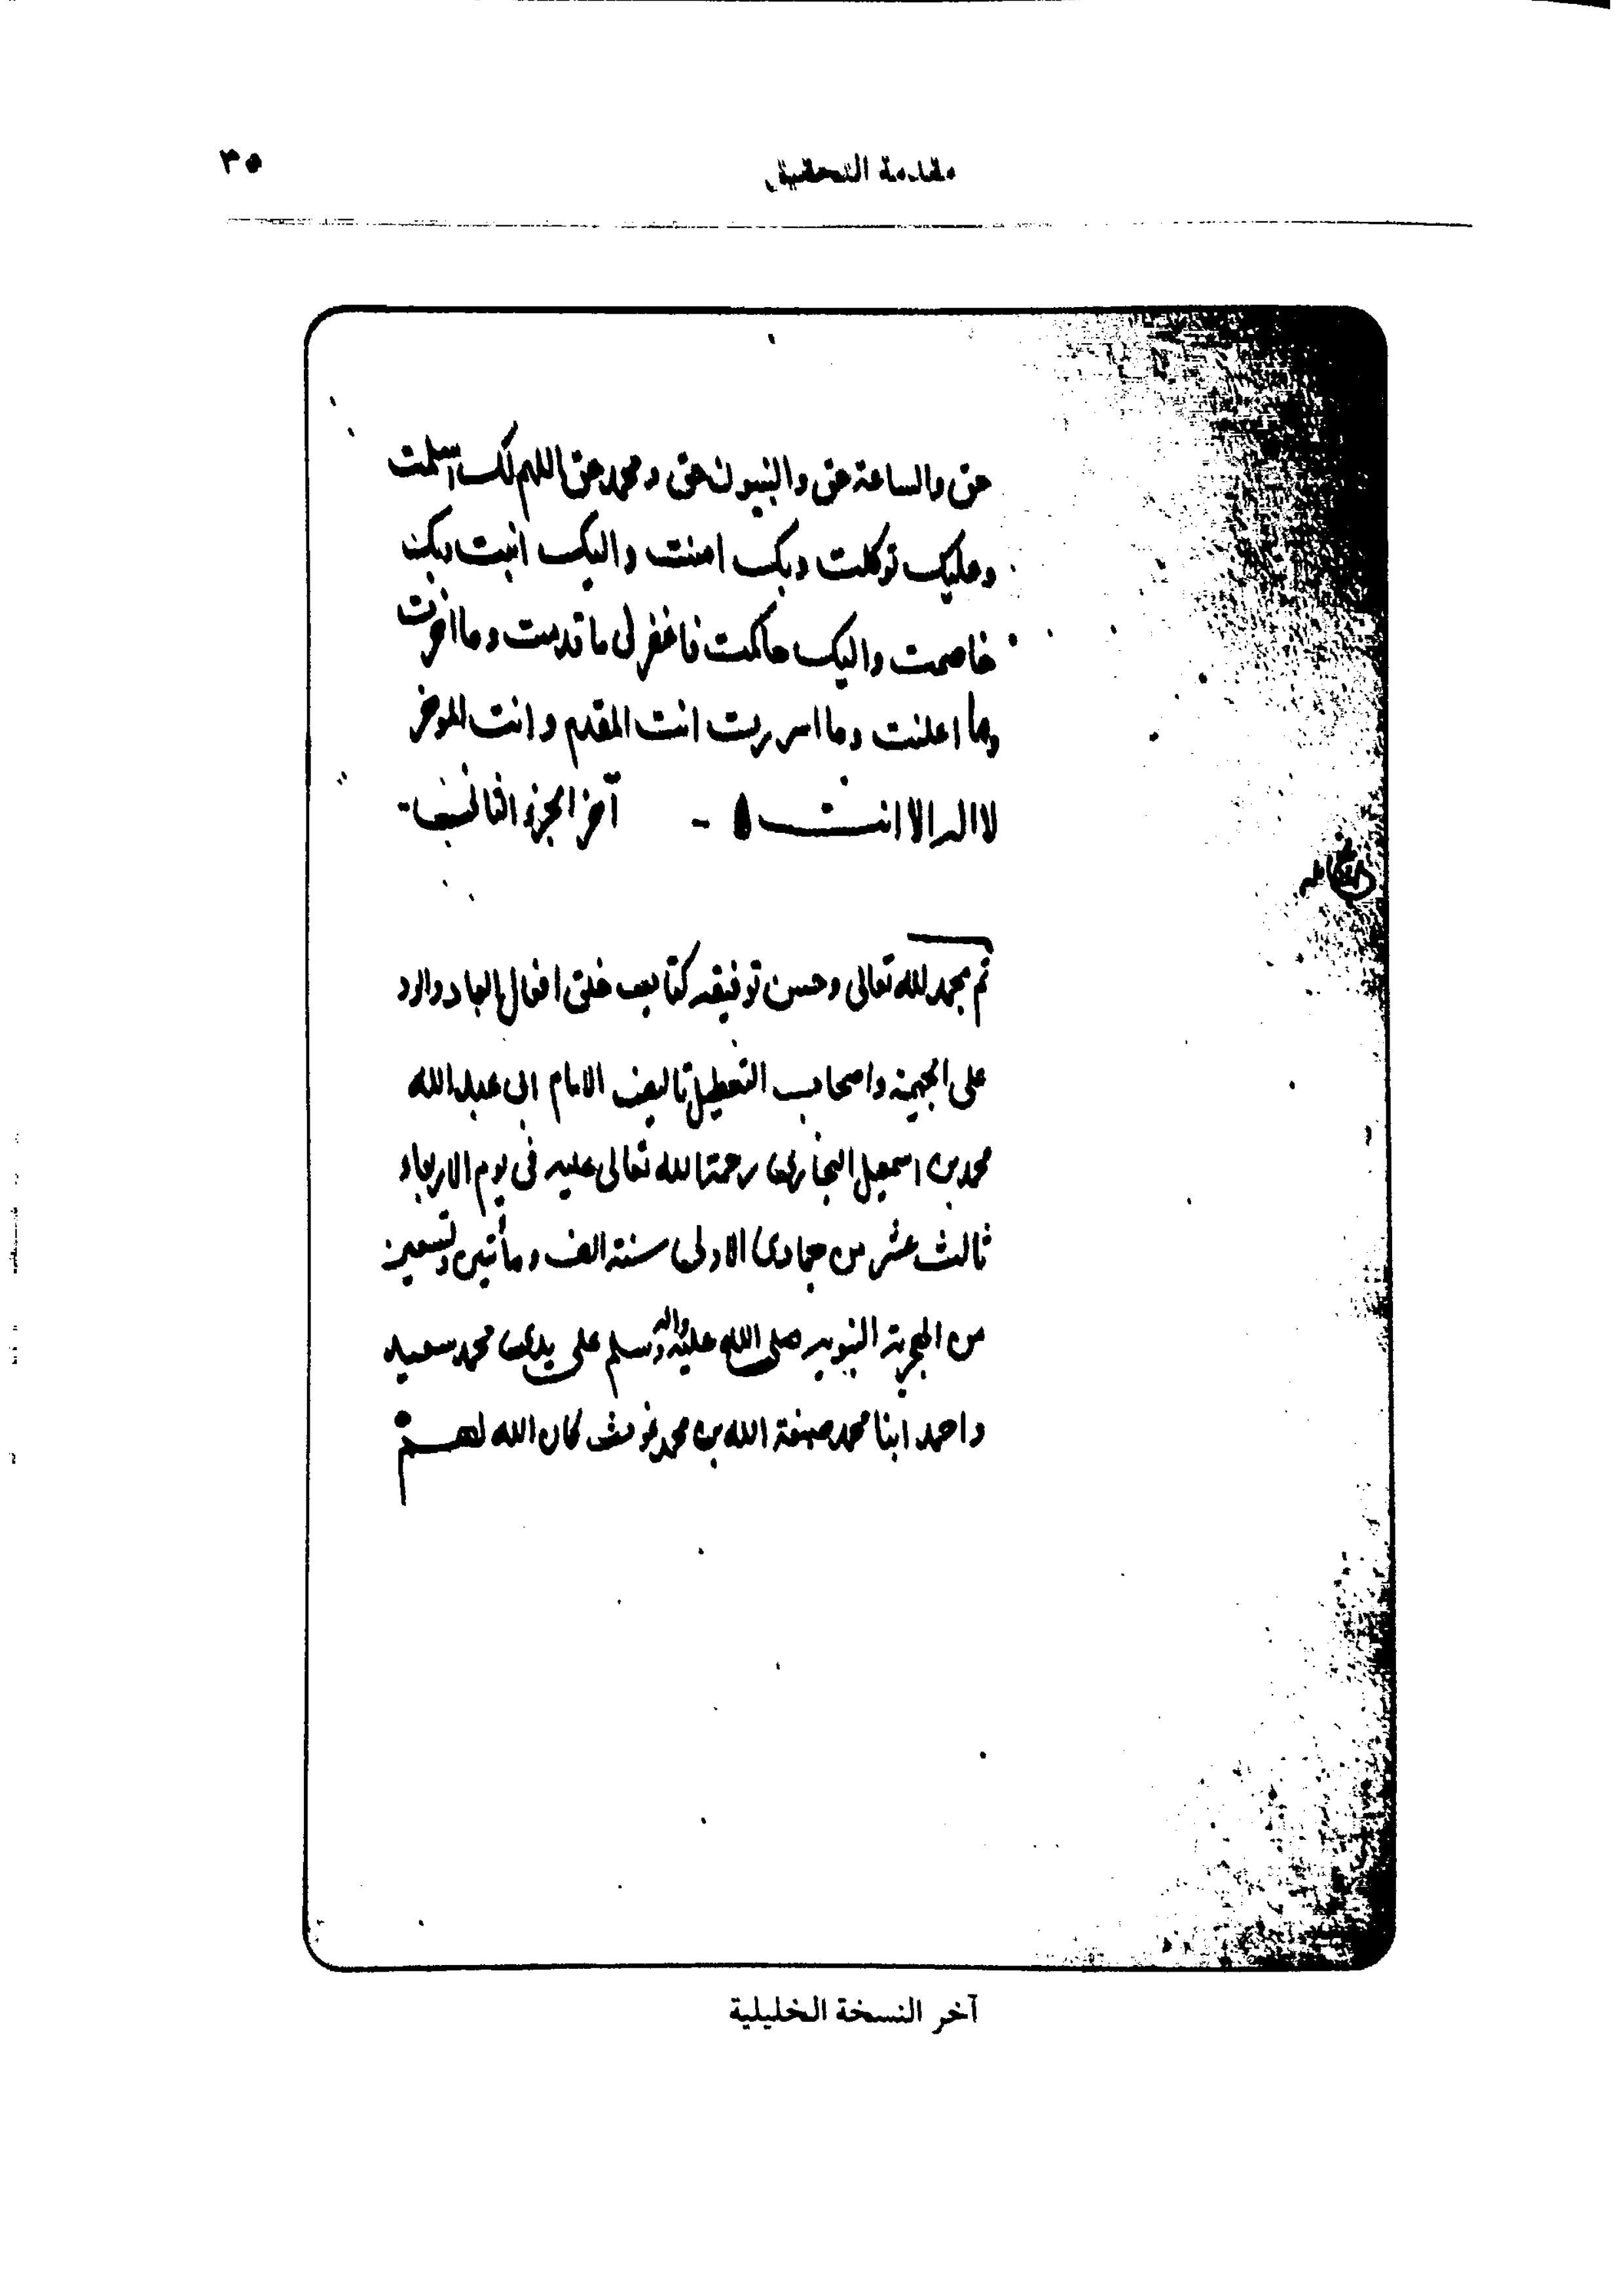 مقدمة التحقيق
٣٥
حق والساعة حق والنبيون حق ومحمد حق اللهم لك اسلمت
وعليك توكلت وبك امنت واليك انبت وبك
خاصمت واليك حاكمت فاغفر لى ما قدمت وما اخرت
وما اعلنت وما اسررت انت المقدم وانت الموخر
لا اله الا انت آخر الجزء الثانى
تم بحمد لله تعالى وحسن توفيقه كتاب خلق افعال العباد والرد
على الجهمية واصحاب التعطيل تاليف الامام ابى عبد الله
محمد بن اسمعيل البخارى رحمة الله تعالى عليه فى يوم الاربعاء
ثالث عشر من جمادى الاولى سنة الف ومأتين وتسعين
من الهجرية النبويه صلى الله عليه واله وسلم على يدى محمد سعيد
واحمد ابنا محمد صبغة الله بن محمد غوث كان الله لهم
آخر النسخة الخليلية